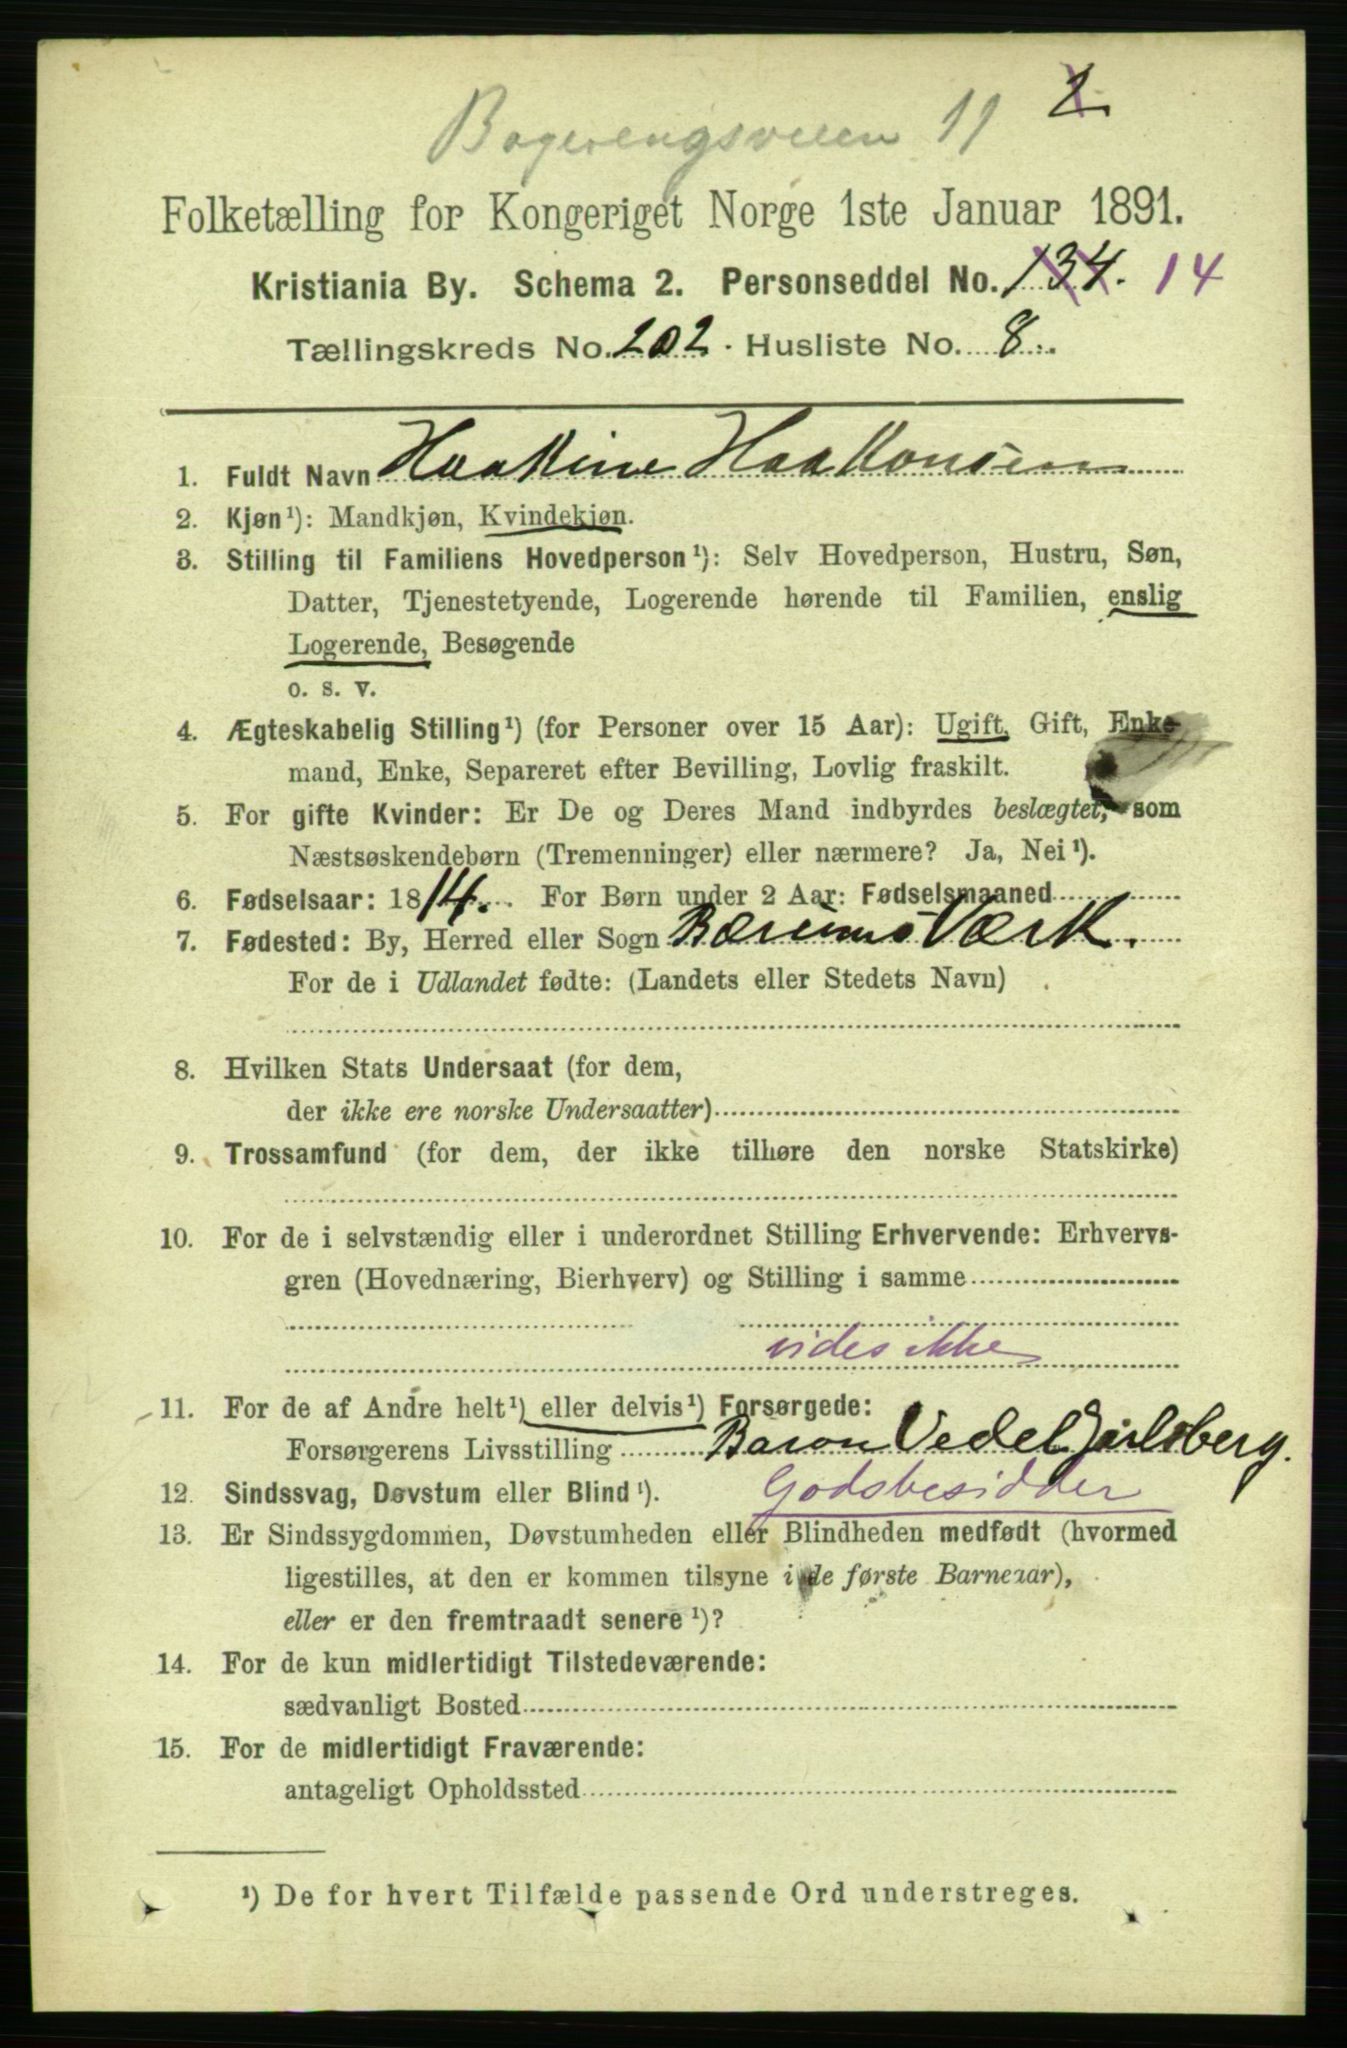 Bogerengsveien 11 2
Folketælling for Kongeriget Norge 1ste Januar 1891.
Kristiania By. Schema 2. Personseddel No. 134. 14
Tællingskreds No. 202. Husliste No. 8.
1. Fuldt Navn Haakine Haakonsen
2. Kjøn¹): Mandkjøn, Kvindekjøn.
3. Stilling til Familiens Hovedperson¹): Selv Hovedperson, Hustru, Søn,
Datter, Tjenestetyende, Logerende hørende til Familien, enslig
Logerende, Besøgende
o. s. v.
4. Ægteskabelig Stilling¹) (for Personer over 15 Aar): Ugift, Gift, Enke-
mand, Enke, Separeret efter Bevilling, Lovlig fraskilt.
5. For gifte Kvinder: Er De og Deres Mand indbyrdes beslægtet, som
Næstsøskendebørn (Tremenninger) eller nærmere? Ja, Nei¹).
6. Fødselsaar: 1814. For Børn under 2 Aar: Fødselsmaaned
7. Fødested: By, Herred eller Sogn Bærums Værk.
For de i Udlandet fødte: (Landets eller Stedets Navn)
8. Hvilken Stats Undersaat (for dem,
der ikke ere norske Undersaatter)
9. Trossamfund (for dem, der ikke tilhøre den norske Statskirke)
10. For de i selvstændig eller i underordnet Stilling Erhvervende: Erhvervs-
gren (Hovednæring, Bierhverv) og Stilling i samme
vides ikke
11. For de af Andre helt¹) eller delvis¹) Forsørgede:
Forsørgerens Livsstilling Baron Vedel Jarlsberg.
Godsbesidder
12. Sindssvag, Døvstum eller Blind¹).
13. Er Sindssygdommen, Døvstumheden eller Blindheden medfødt (hvormed
ligestilles, at den er kommen tilsyne i de første Barneaar),
eller er den fremtraadt senere¹)?
14. For de kun midlertidigt Tilstedeværende:
sædvanligt Bosted
15. For de midlertidigt Fraværende:
antageligt Opholdssted
¹) De for hvert Tilfælde passende Ord understreges.